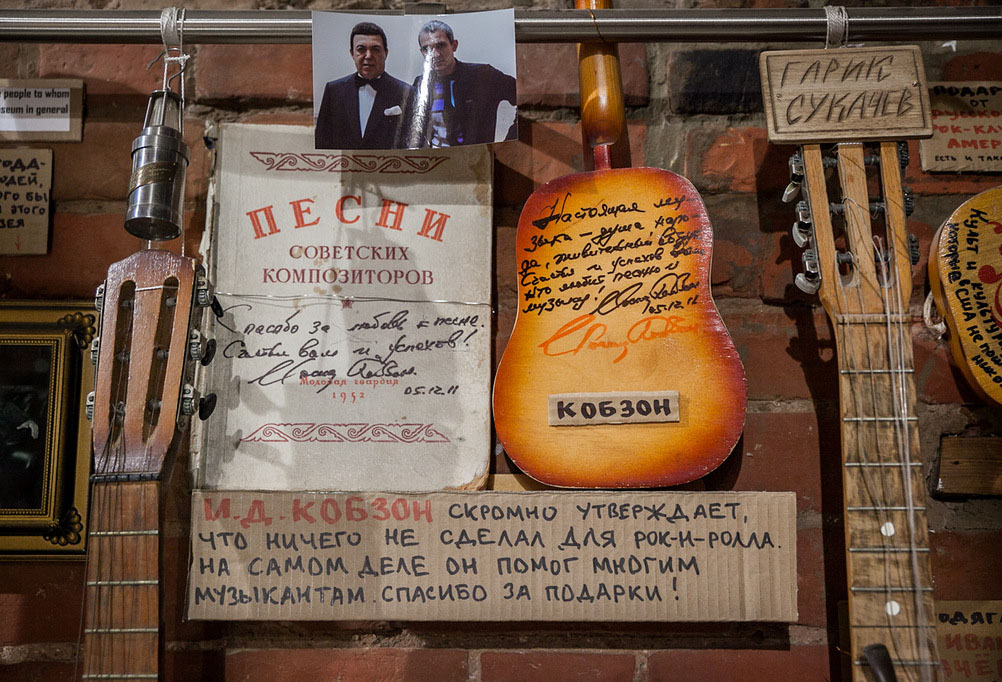 people to whom
museum in general
ПЕСНИ
СОВЕТСКИХ
КОМПОЗИТОРОВ
Спасибо за любовь к песне.
Счастья вам и успехов!
Молодая гвардия
1952
05.12.11
Настоящая му
зыка – душа наро-
да, живительный
Счастья и успехов всем
кто любит песню и
музыку!
05.12.11
КОБЗОН
ГАРИК
СУКАЧЕВ
ПОДАР
ОТ
РУССКО
РОК-КЛ
АМЕРИ
ЕСТЬ И ТА
КУЛЬТ И
И.Д. КОБЗОН СКРОМНО УТВЕРЖДАЕТ,
ЧТО НИЧЕГО НЕ СДЕЛАЛ ДЛЯ РОК-Н-РОЛЛА.
НА САМОМ ДЕЛЕ ОН ПОМОГ МНОГИМ
МУЗЫКАНТАМ. СПАСИБО ЗА ПОДАРКИ!